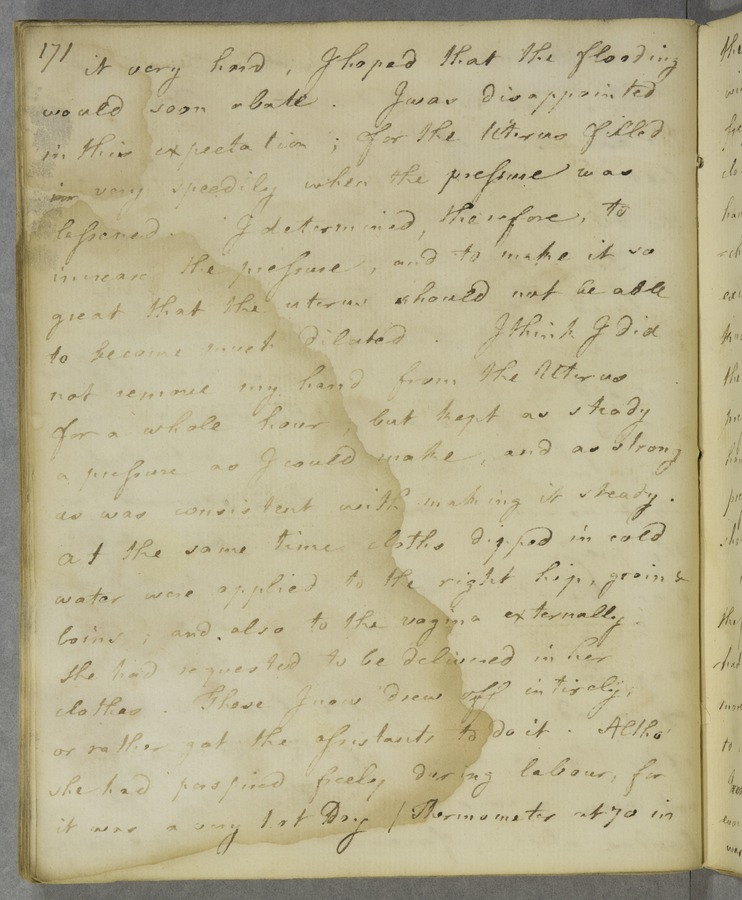 171
it very hard, I hoped that the flooding
would soon abate. I was disappointed
in this expectation; for the Uterus filled
very speedily when the pressure was
lessened. I determined, therefore, to
increase the pressure, and to make it so
great that the uterus should not be able
to become much dilated. I think I did
not remove my hand from the Uterus
for a whole hour, but kept as steady
a pressure as I could make, and as strong
as was consistent with making it steady.
At the same time cloths dipped in cold
water were applied to the right hip, groin &
loins; and also to the vagina externally.
She had requested to be delivered in her
clothes. Those I now drew off intirely;
or rather got the assistants to do it. Altho'
she had perspired freely during labour, for
it was a very hot Day / Thermometer at 70 in